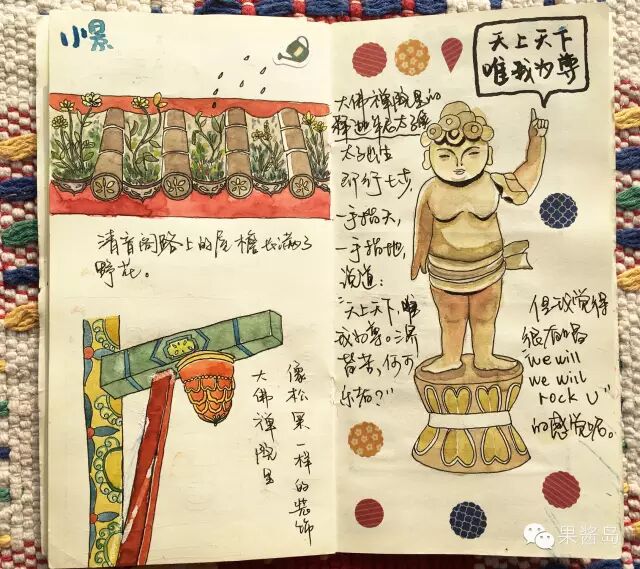 小景
清音阁路上的屋檐长满了
野花。
大佛禅院里
像松果一样的装饰
天上天下
唯我为尊
大佛禅院里的
释迦牟尼太子像
太子出生
即行七步,
一手指天,
一手指地,
说道:
"天上天下,唯
我为尊。三界
皆苦,何可
乐者?"
但我觉得
很有唱
"we will
we will
rock U"
的感觉呢。
果酱岛